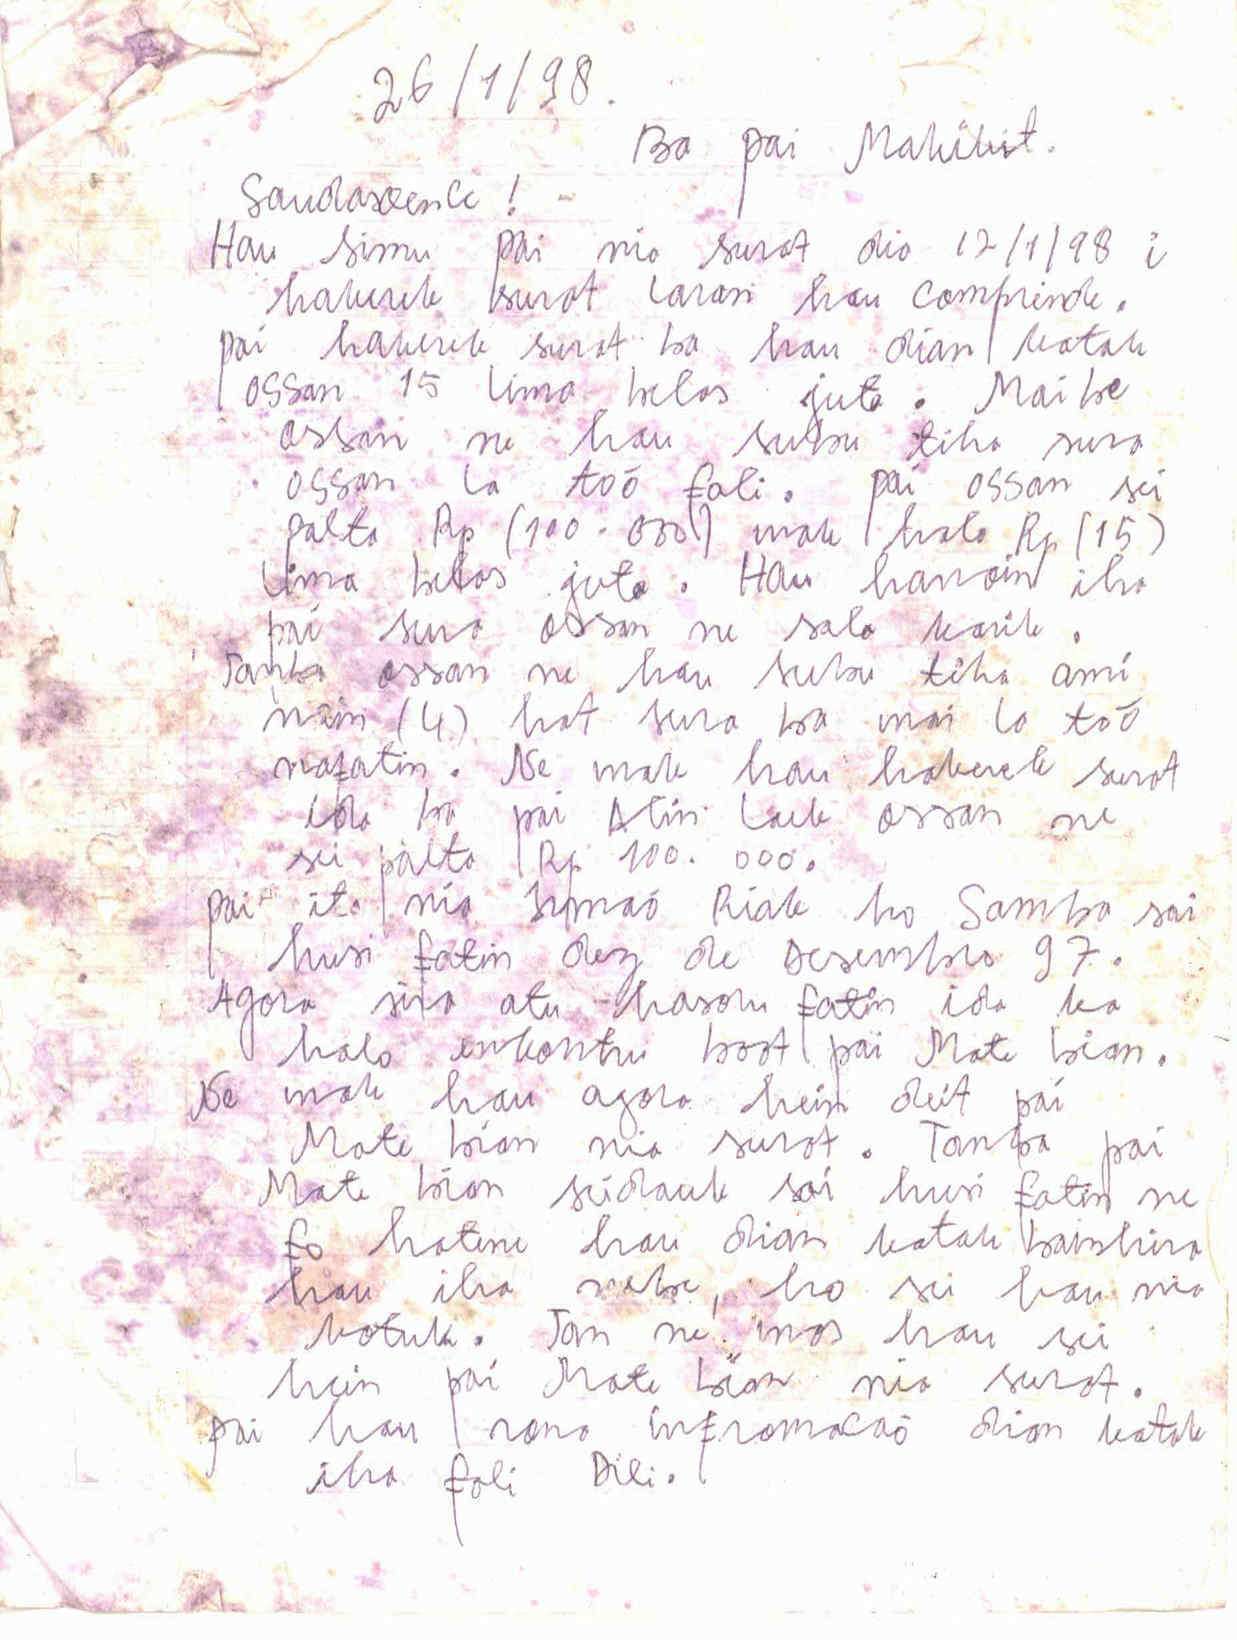 26/1/98.
Ba pai Mahikit.
Saudasoensc !
Hau simu pai nia surat dia 12/1/98 i
hakerek surat laran hau comprende.
pai hakerek surat ba hau dian katak
ossan 15 lima belas juta. Maibe
ossan ne hau subu tiha sura
ossan la toó fali. pai ossan sei
palta Rp (100.000) mak halo Rp (15)
lima belas juta. Hau hanoin iha
pai sura ossan ne sala karik.
Tanba ossan ne hau subu tiha ami
nain (4) hat sura ba mai la toó
nafatin. Ne mak hau hakerek surat
ida ba pai Alin Laek ossan ne
sei palta Rp 100.000.
pai ita nia Irmaó Riak ho Samba sai
husi fatin dez de Desembro 97.
Agora sira atu hasoru fatin ida ka
halo enkontru boot pai Mate bian.
Ne mak hau agora hein deit pai
Mate bian nia surat. Tanba pai
Mate bian seidauk sai husi fatin ne
fo hatene hau dian katak bainhira
hau iha nebe, ho sei hau nia
kotuk. Tan ne mos hau sei
hein pai Mate bian nia surat.
pai hau rona infromacaó dian katak
iha fali Dili.